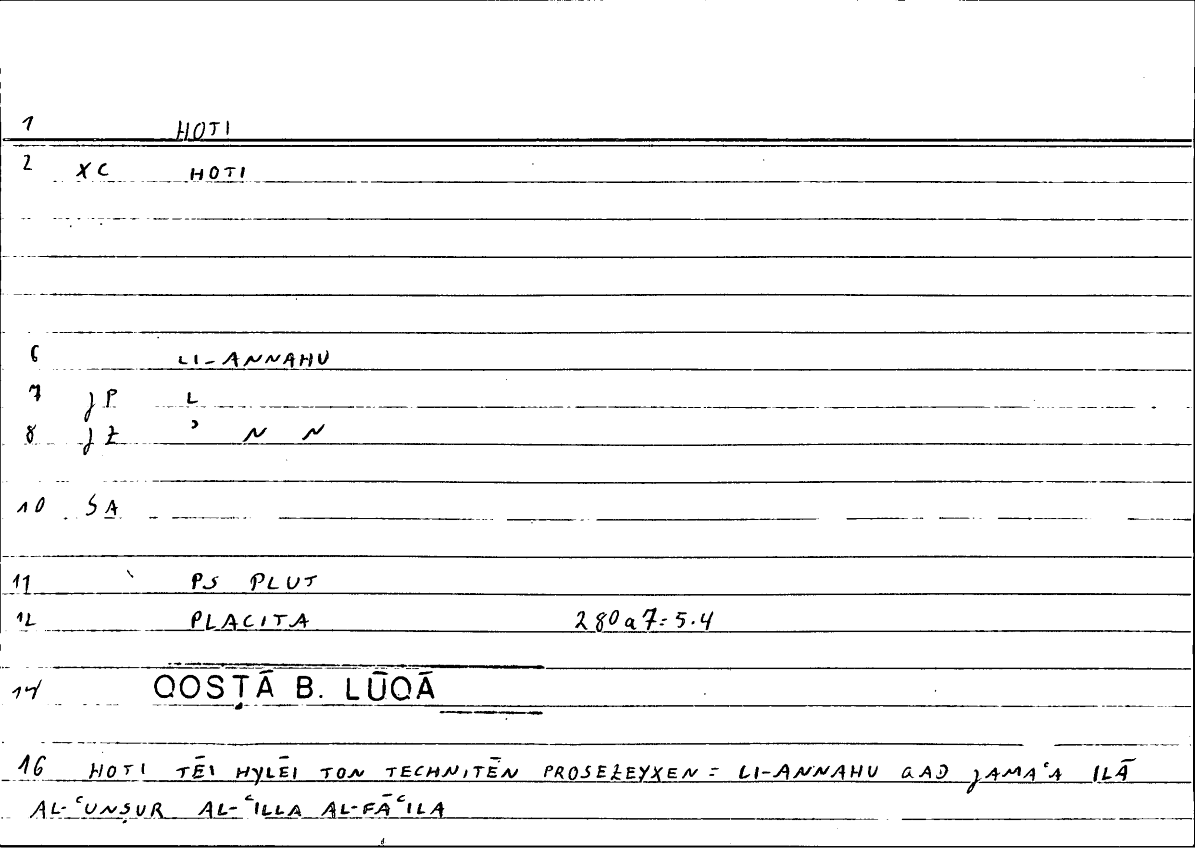 1 HOTI
2 XC HOTI
6 LI-ANNAHU
7 JP L
8 JZ ʾ N N
10 SA
11 PS PLUT
12 PLACITA 280a7=5.4
14 QOSṬĀ B. LŪQĀ
16 HOTI TĒI HYLĒI TON TECHNITĒN PROSEZEYXEN = LI-ANNAHU QAD JAMAʿA ILĀ
AL-ʿUNṢUR AL-ʿILLA AL-FĀʿILA